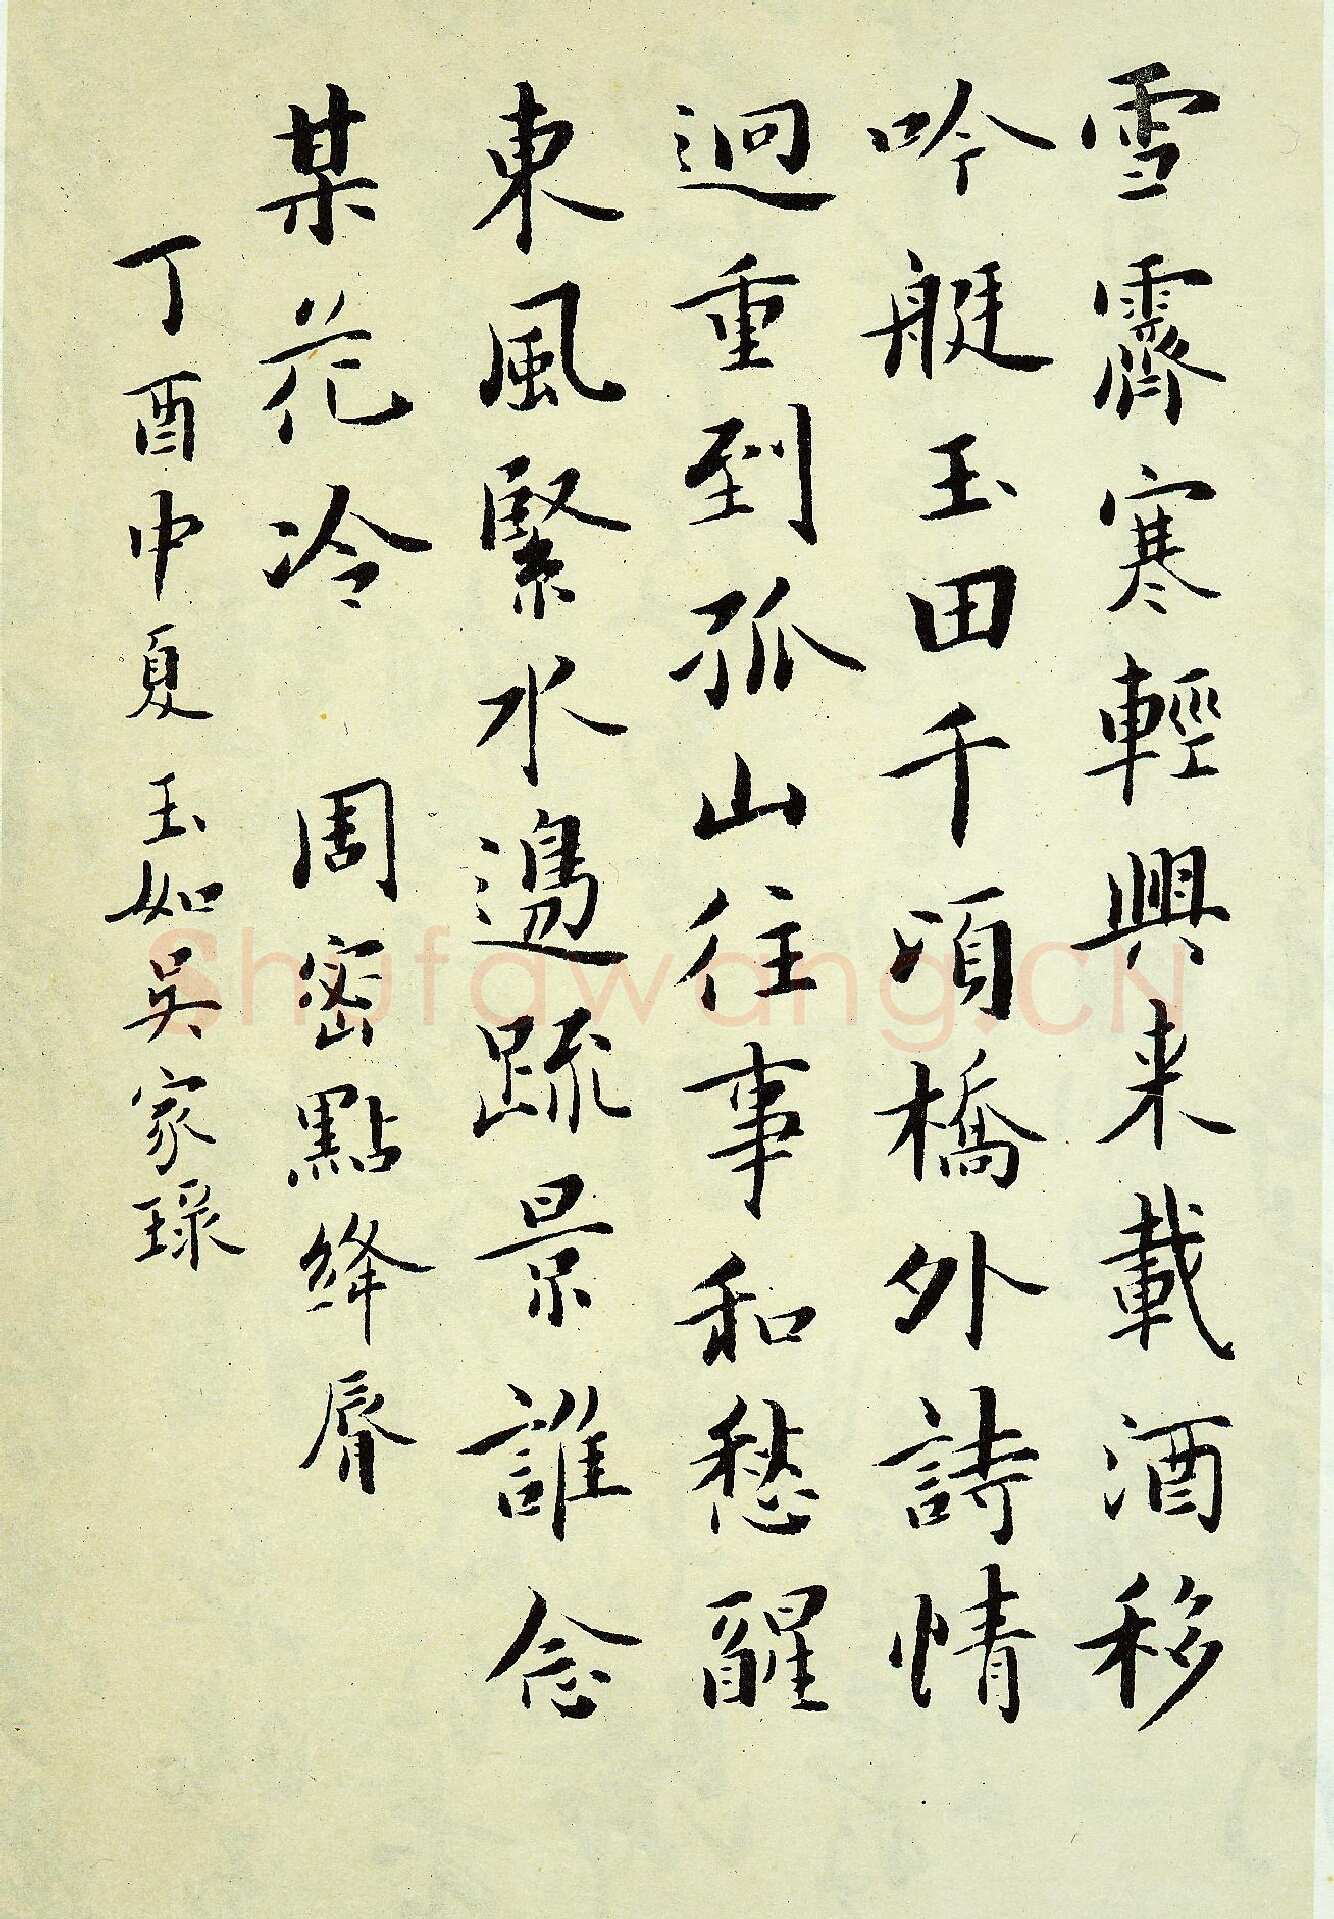 雪霽寒輕興来載酒移
吟艇玉田千頃橋外詩情
迥重到孤山往事和愁醒
東風緊水邊疏景誰念
某花冷　周密點絳脣
丁酉中夏玉如吳家琭
Shufawang.CN